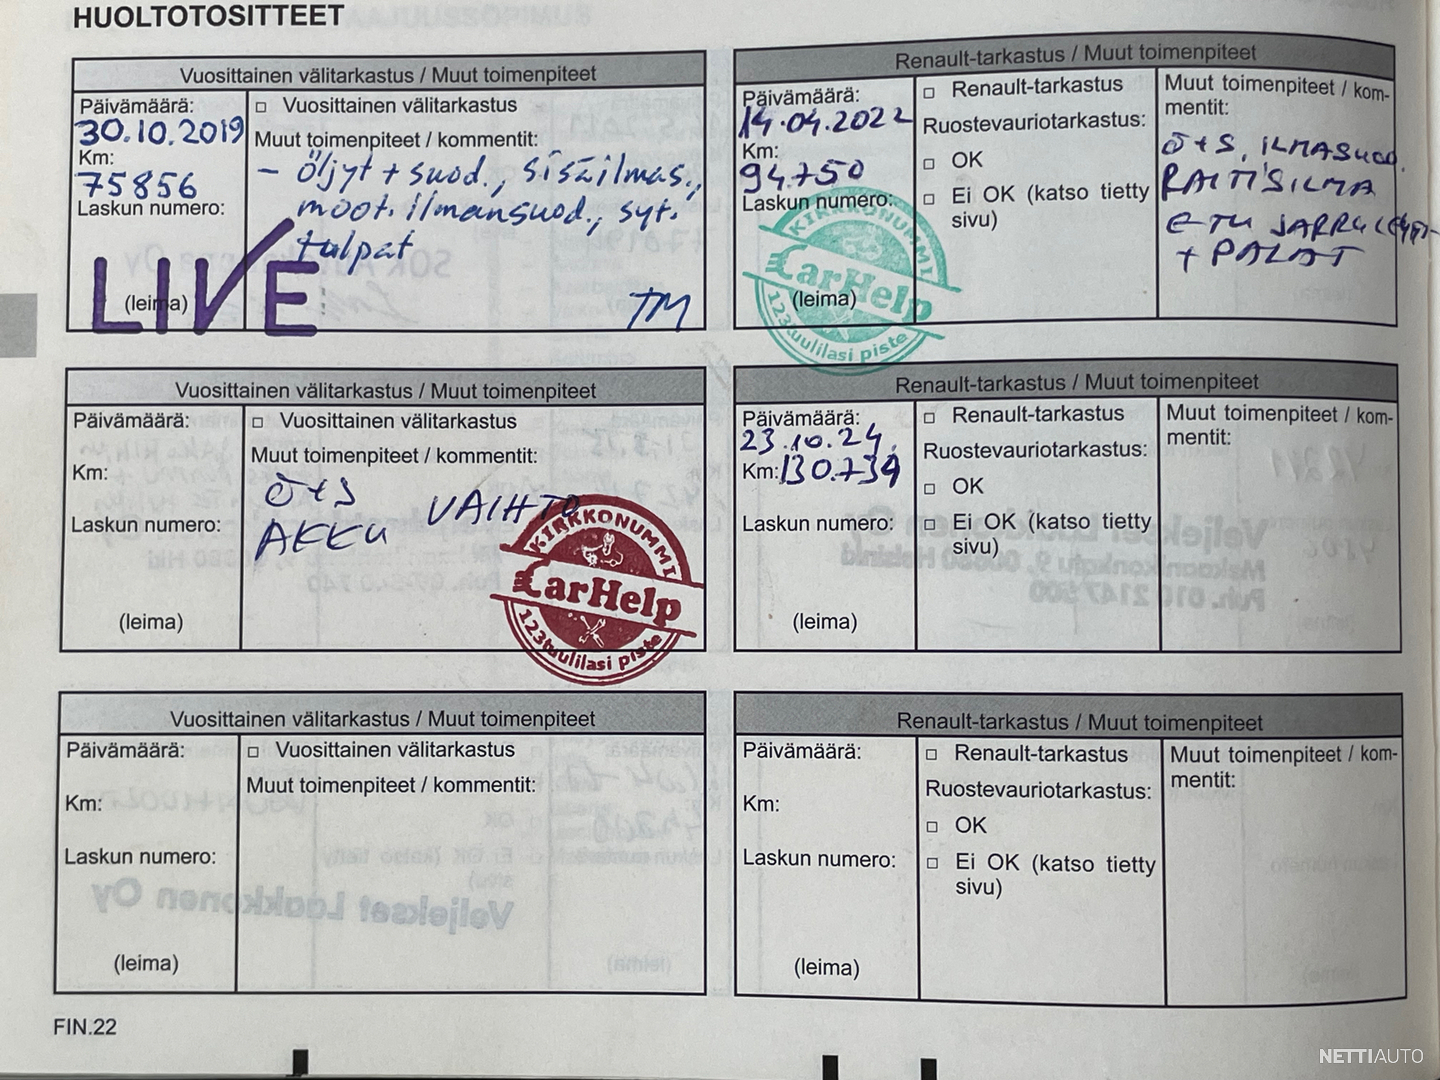 HUOLTOTOSITTEET
Vuosittainen välitarkastus / Muut toimenpiteet
Päivämäärä:
30.10.2019
Km:
75856
Laskun numero:
(leima)
LIVE
□ Vuosittainen välitarkastus
Muut toimenpiteet / kommentit:
- Öljyt + suod., sisäilmas.,
moot. ilmansuod., syt.
tulpat
TM
Renault-tarkastus / Muut toimenpiteet
Päivämäärä:
14.04.2022
Km:
94.750
Laskun numero:
(leima)
KIRKKONUMMI
CarHelp
123tuulilasi piste
□ Renault-tarkastus
Ruostevauriotarkastus:
□ OK
□ Ei OK (katso tietty
sivu)
Muut toimenpiteet / kom-
mentit:
Ö+S, ILMASUOD.
RAITISILMA
ETU JARRU
+ PALAT
Vuosittainen välitarkastus / Muut toimenpiteet
Päivämäärä:
Km:
Laskun numero:
(leima)
□ Vuosittainen välitarkastus
Muut toimenpiteet / kommentit:
Ö+S
AKKU VAIHTO
KIRKKONUMMI
CarHelp
123tuulilasi piste
Renault-tarkastus / Muut toimenpiteet
Päivämäärä:
23.10.24.
Km: 130.734
Laskun numero:
(leima)
□ Renault-tarkastus
Ruostevauriotarkastus:
□ OK
□ Ei OK (katso tietty
sivu)
Muut toimenpiteet / kom-
mentit:
Vuosittainen välitarkastus / Muut toimenpiteet
Päivämäärä:
Km:
Laskun numero:
(leima)
□ Vuosittainen välitarkastus
Muut toimenpiteet / kommentit:
Renault-tarkastus / Muut toimenpiteet
Päivämäärä:
Km:
Laskun numero:
(leima)
□ Renault-tarkastus
Ruostevauriotarkastus:
□ OK
□ Ei OK (katso tietty
sivu)
Muut toimenpiteet / kom-
mentit:
FIN.22
NETTIAUTO